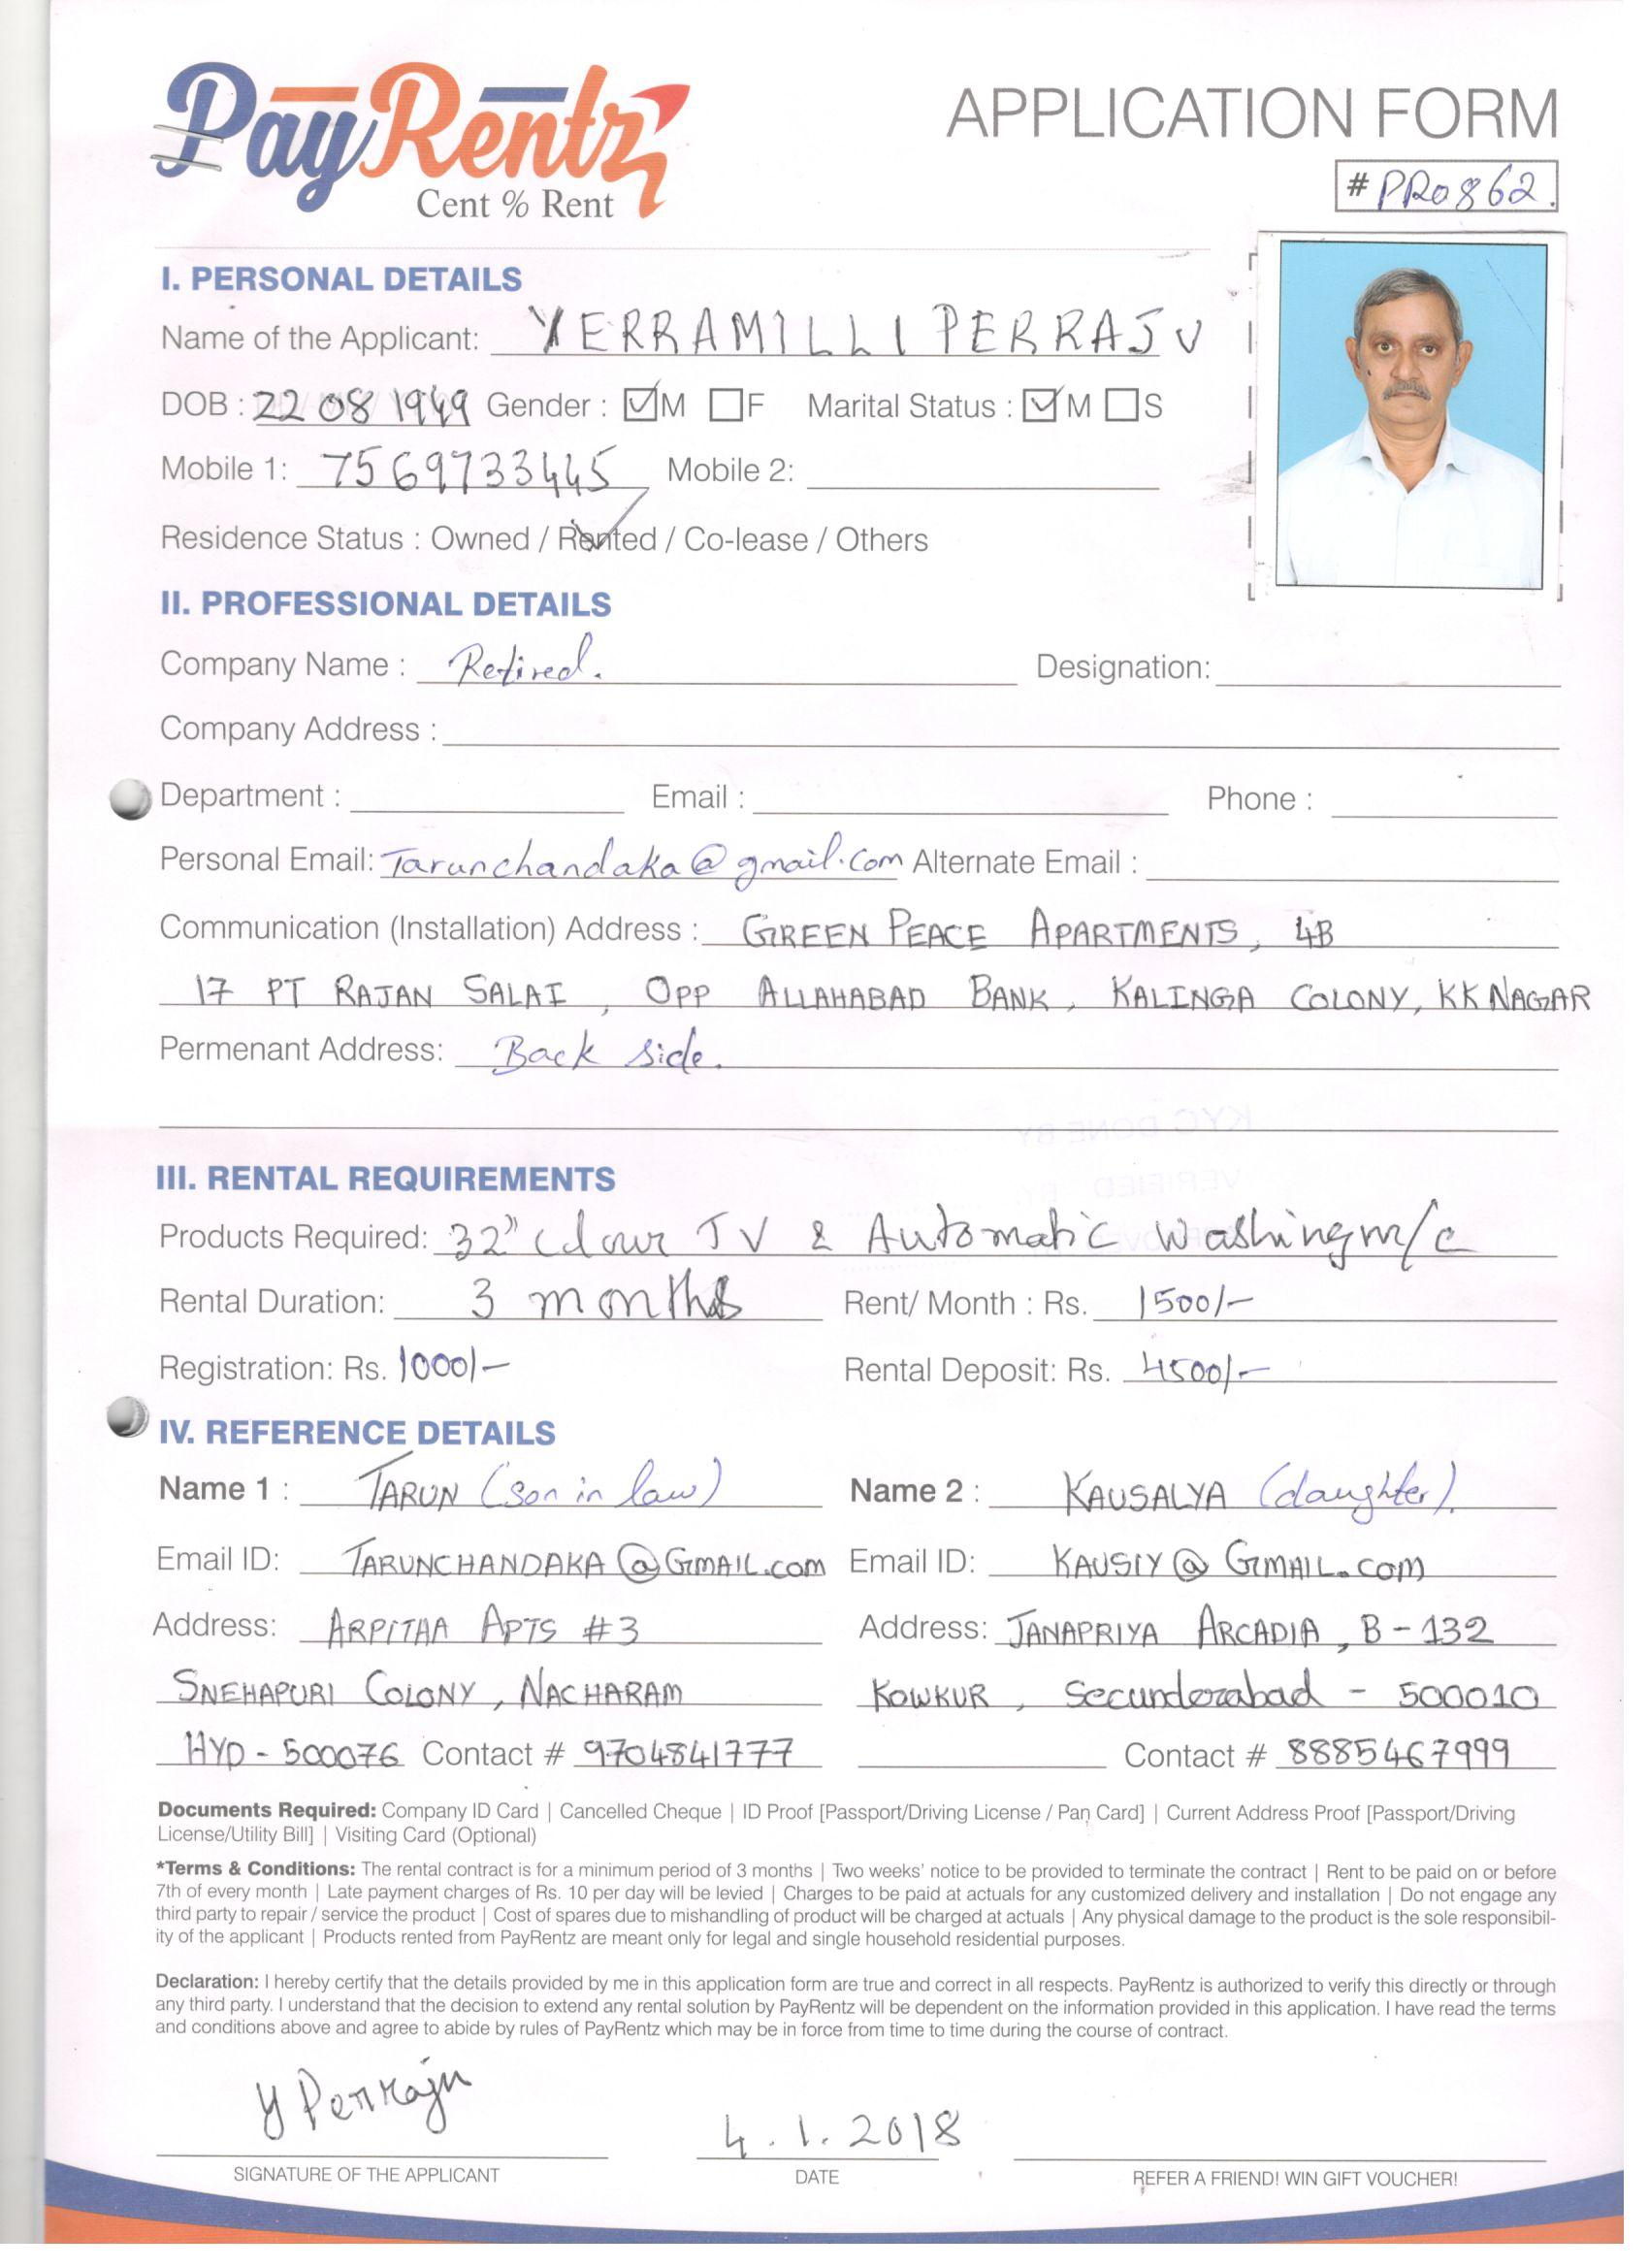 PayRentz
Cent % Rent
APPLICATION FORM
# PR0862.
I. PERSONAL DETAILS
Name of the Applicant: YERRAMILLI PERRAJU
DOB : 22 08 1949 Gender : M F Marital Status : M S
Mobile 1: 7569733445 Mobile 2:
Residence Status : Owned / Rented / Co-lease / Others
II. PROFESSIONAL DETAILS
Company Name : Retired. Designation:
Company Address :
Department : Email : Phone :
Personal Email: Tarunchandaka@gmail.com Alternate Email :
Communication (Installation) Address : GREEN PEACE APARTMENTS, 4B
17 PT RAJAN SALAI, OPP ALLAHABAD BANK, KALINGA COLONY, KK NAGAR
Permenant Address: Back side.
KYC DONE BY
VERIFIED BY
III. RENTAL REQUIREMENTS
Products Required: 32" Colour TV & Automatic Washing m/c
Rental Duration: 3 months Rent/ Month : Rs. 1500/-
Registration: Rs. 1000/- Rental Deposit: Rs. 4500/-
IV. REFERENCE DETAILS
Name 1 : TARUN (son in law) Name 2 : KAUSALYA (daughter).
Email ID: TARUNCHANDAKA@GMAIL.com Email ID: KAUSIY@GMAIL.com
Address: ARPITHA APTS #3 Address: JANAPRIYA ARCADIA, B-132
SNEHAPURI COLONY, NACHARAM KOWKUR, Secunderabad - 500010
HYD - 500076 Contact # 9704841777 Contact # 8885467999
Documents Required: Company ID Card | Cancelled Cheque | ID Proof [Passport/Driving License / Pan Card] | Current Address Proof [Passport/Driving
License/Utility Bill] | Visiting Card (Optional)
*Terms & Conditions: The rental contract is for a minimum period of 3 months | Two weeks' notice to be provided to terminate the contract | Rent to be paid on or before
7th of every month | Late payment charges of Rs. 10 per day will be levied | Charges to be paid at actuals for any customized delivery and installation | Do not engage any
third party to repair / service the product | Cost of spares due to mishandling of product will be charged at actuals | Any physical damage to the product is the sole responsibil-
ity of the applicant | Products rented from PayRentz are meant only for legal and single household residential purposes.
Declaration: I hereby certify that the details provided by me in this application form are true and correct in all respects. PayRentz is authorized to verify this directly or through
any third party. I understand that the decision to extend any rental solution by PayRentz will be dependent on the information provided in this application. I have read the terms
and conditions above and agree to abide by rules of PayRentz which may be in force from time to time during the course of contract.
Y Perraju
4.1.2018
SIGNATURE OF THE APPLICANT DATE REFER A FRIEND! WIN GIFT VOUCHER!